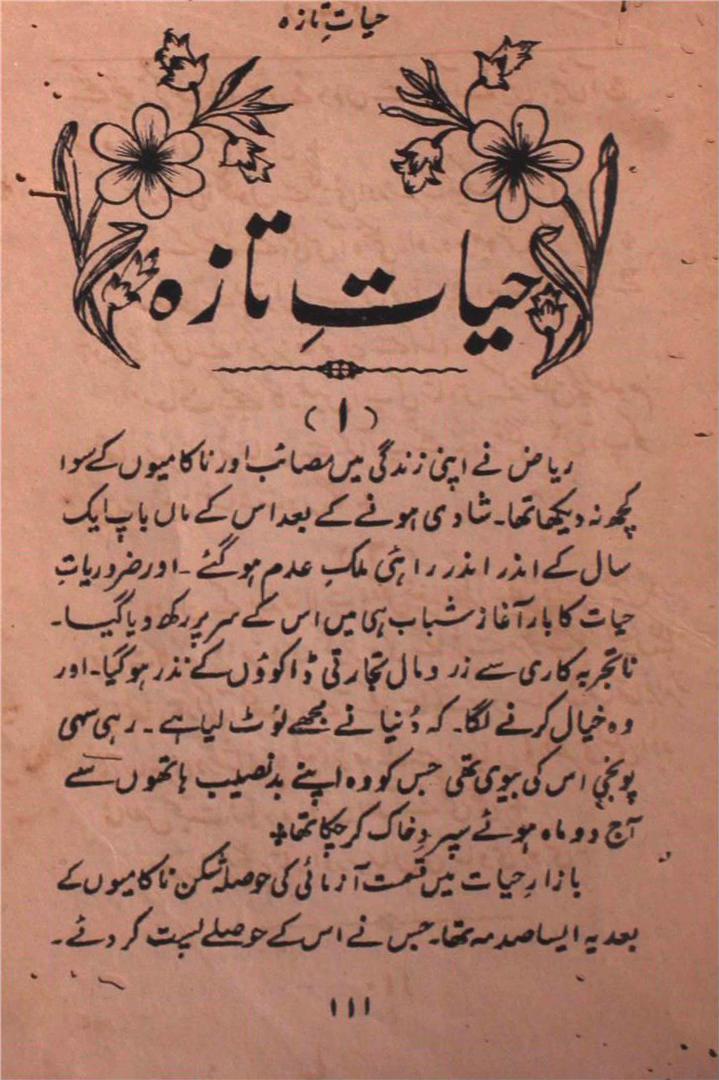 حیاتِ تازہ
حیاتِ تازہ
(۱)
ریاض نے اپنی زندگی میں مصائب اور ناکامیوں کے سوا
کچھ نہ دیکھا تھا۔ شادی ہونے کے بعد اس کے ماں باپ ایک
سال کے اندر اندر راہئی ملکِ عدم ہو گئے ۔ اور ضروریاتِ
حیات کا بار آغازِ شباب ہی میں اس کے سر پر رکھ دیا گیا۔
ناتجربہ کاری سے زر و مال تجارتی ڈاکوؤں کے نذر ہو گیا۔ اور
وہ خیال کرنے لگا۔ کہ دُنیا نے مجھے لُوٹ لیا ہے ۔ رہی سہی
پونجی اس کی بیوی تھی جس کو وہ اپنے بدنصیب ہاتھوں سے
آج دو ماہ ہوئے سپردِ خاک کر چکا تھا٭
بازارِ حیات میں قسمت آزمائی کی حوصلہ شکن ناکامیوں کے
بعد یہ ایسا صدمہ تھا۔ جس نے اس کے حوصلے پست کر دئے ۔
۱۱۱